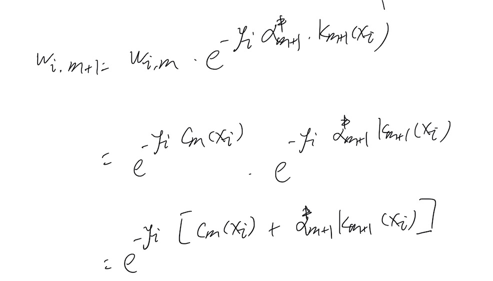 w_{i,m+1} = w_{i,m} · e^{-y_i α^*_{m+1} · k_{m+1}(x_i)}
= e^{-y_i C_m(x_i)} · e^{-y_i α^*_{m+1} k_{m+1}(x_i)}
= e^{-y_i [C_m(x_i) + α^*_{m+1} k_{m+1}(x_i)]}